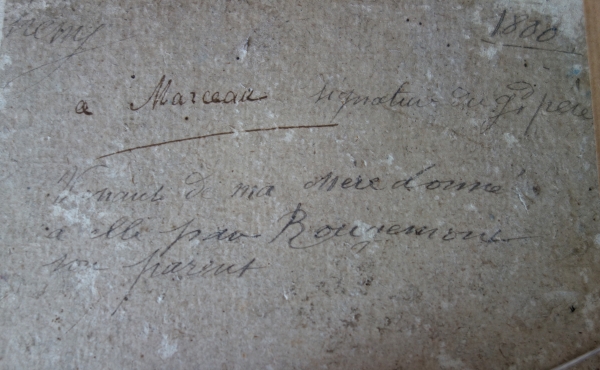 1800
a Marceau signature du Gd père
Venant de ma mère donné
à elle par Rougemont
son parent